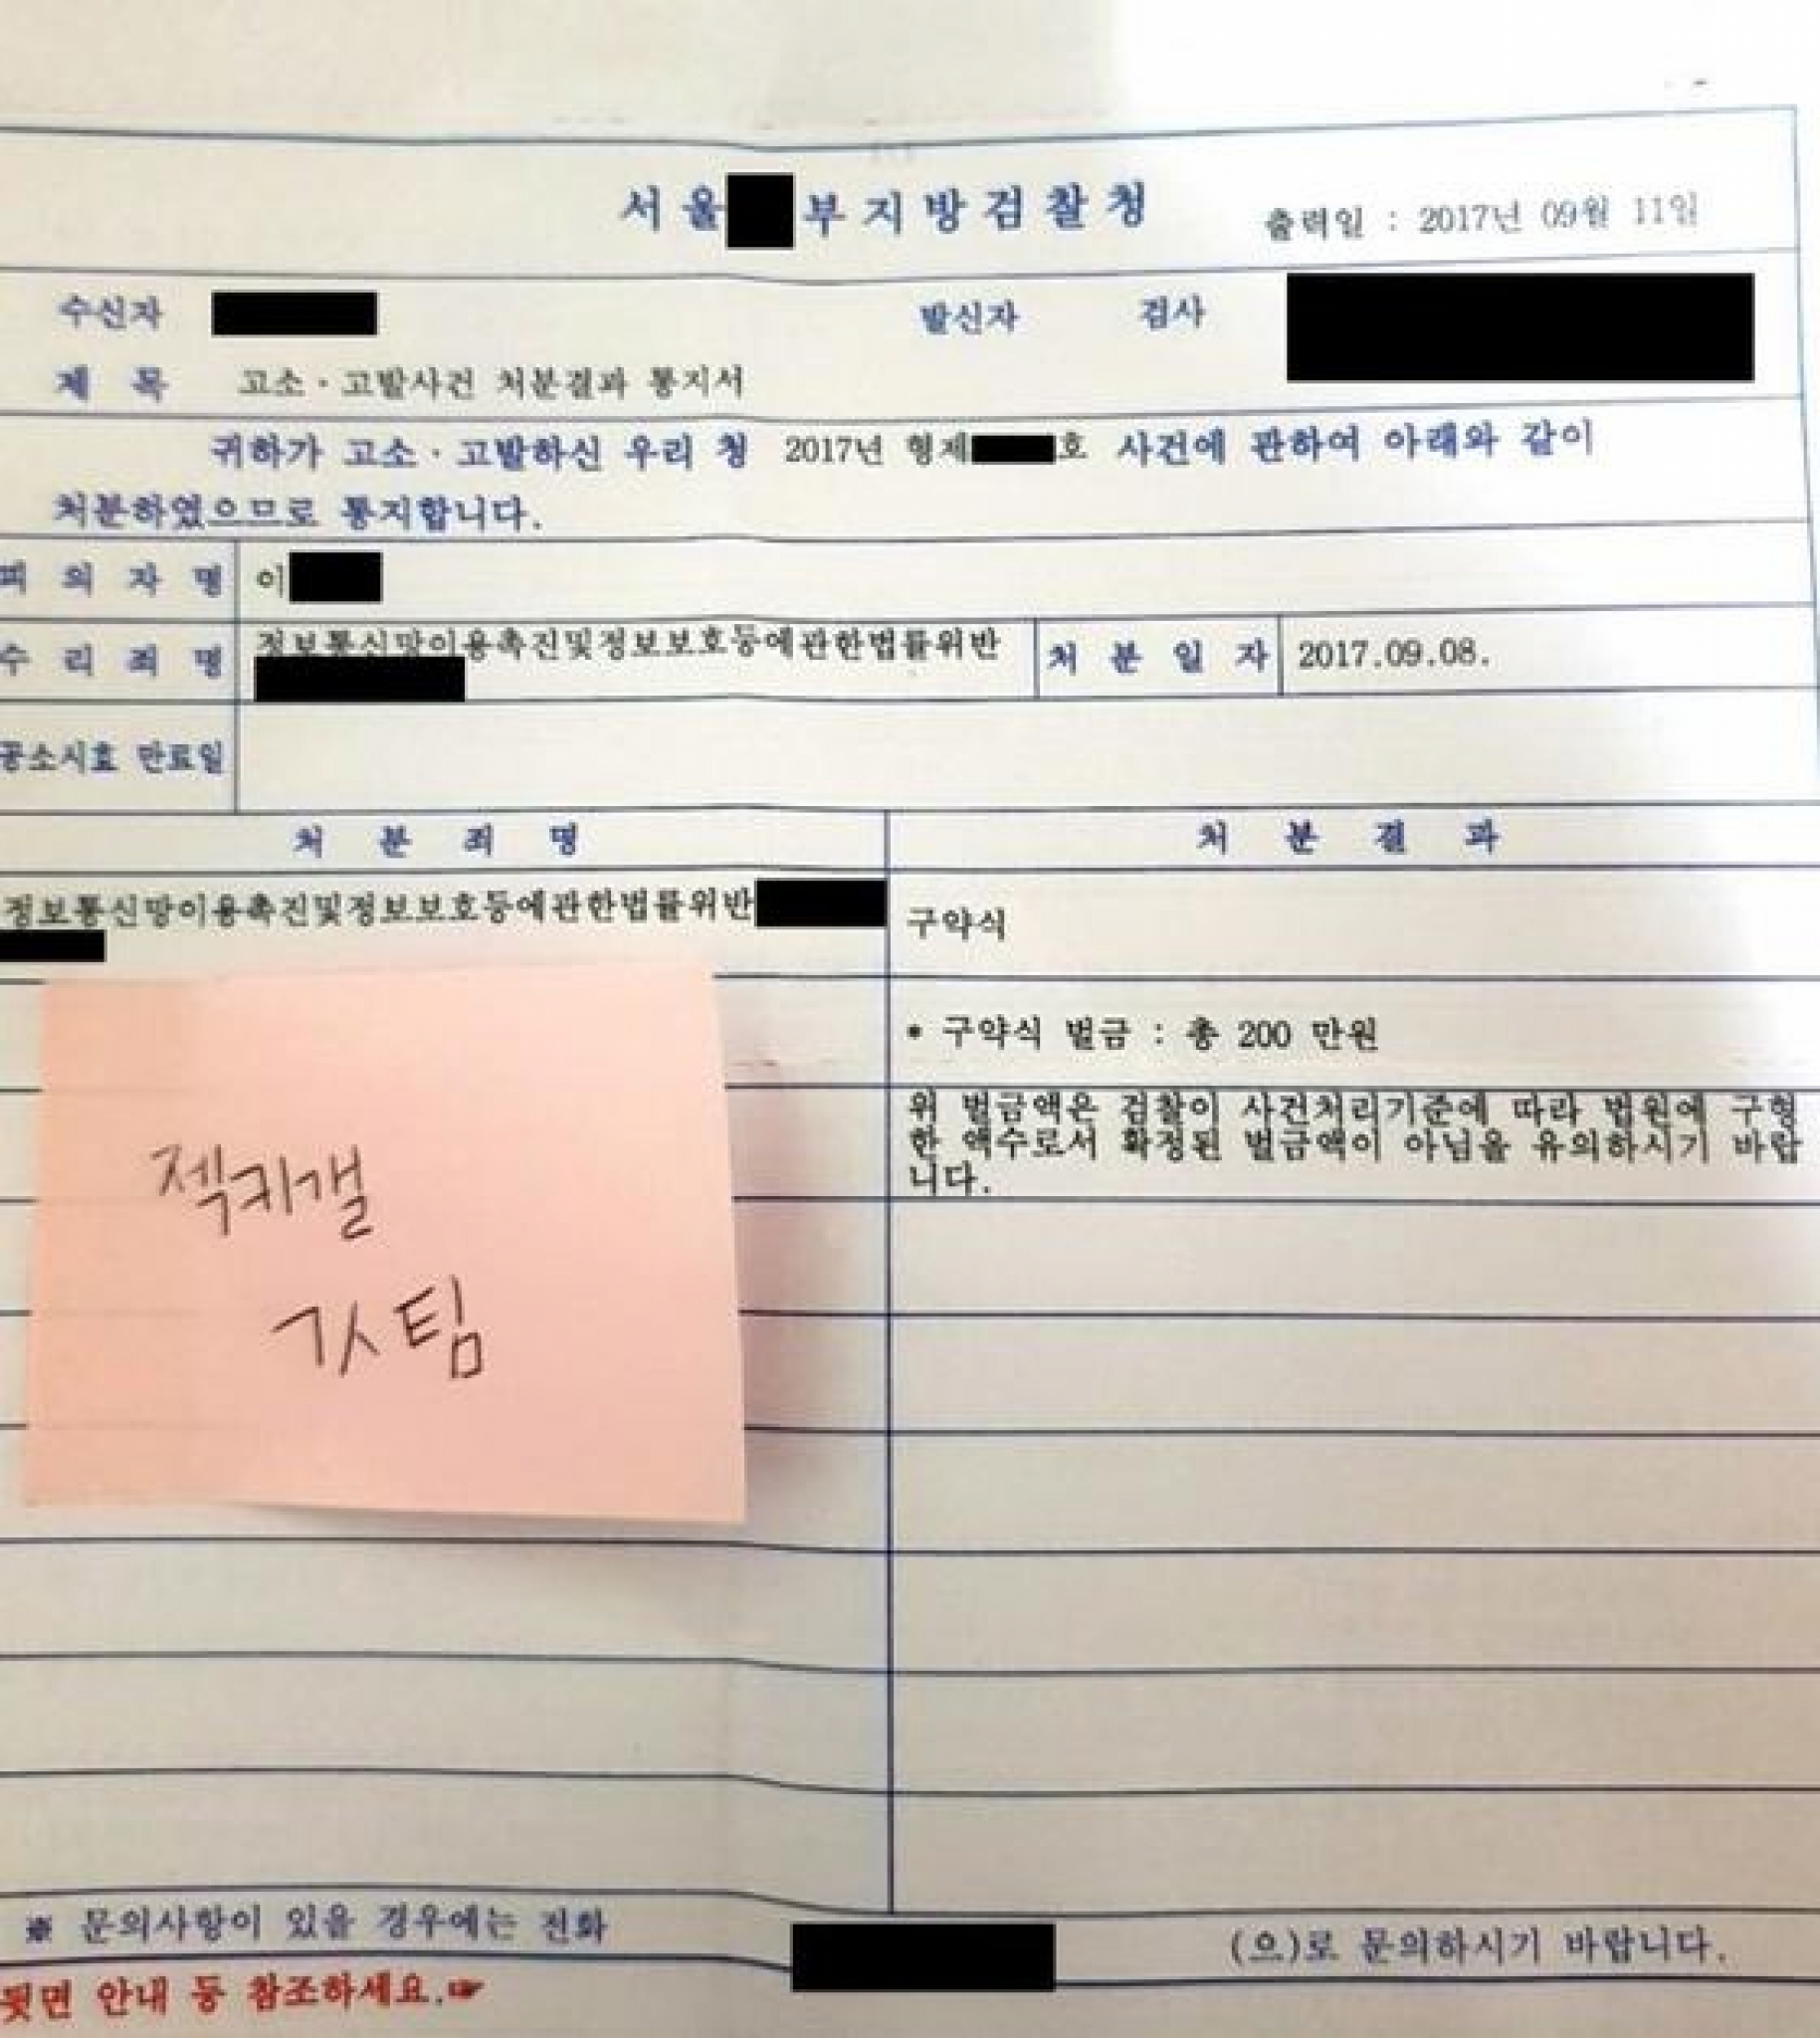 서울 부지방검찰청 출력일 : 2017년 09월 11일
수신자 발신자 검사
제 목 고소·고발사건 처분결과 통지서
귀하가 고소·고발하신 우리 청 2017년 형제 호 사건에 관하여 아래와 같이
처분하였으므로 통지합니다.
피 의 자 명 이
수 리 죄 명 정보통신망이용촉진및정보보호등에관한법률위반 처 분 일 자 2017.09.08.
공소시효 만료일
처 분 죄 명 처 분 결 과
정보통신망이용촉진및정보보호등에관한법률위반 구약식
* 구약식 벌금 : 총 200 만원
위 벌금액은 검찰이 사건처리기준에 따라 법원에 구형
한 액수로서 확정된 벌금액이 아님을 유의하시기 바랍
니다.
젝키갤
갓팀
※ 문의사항이 있을 경우에는 전화 (으)로 문의하시기 바랍니다.
뒷면 안내 등 참조하세요.☞